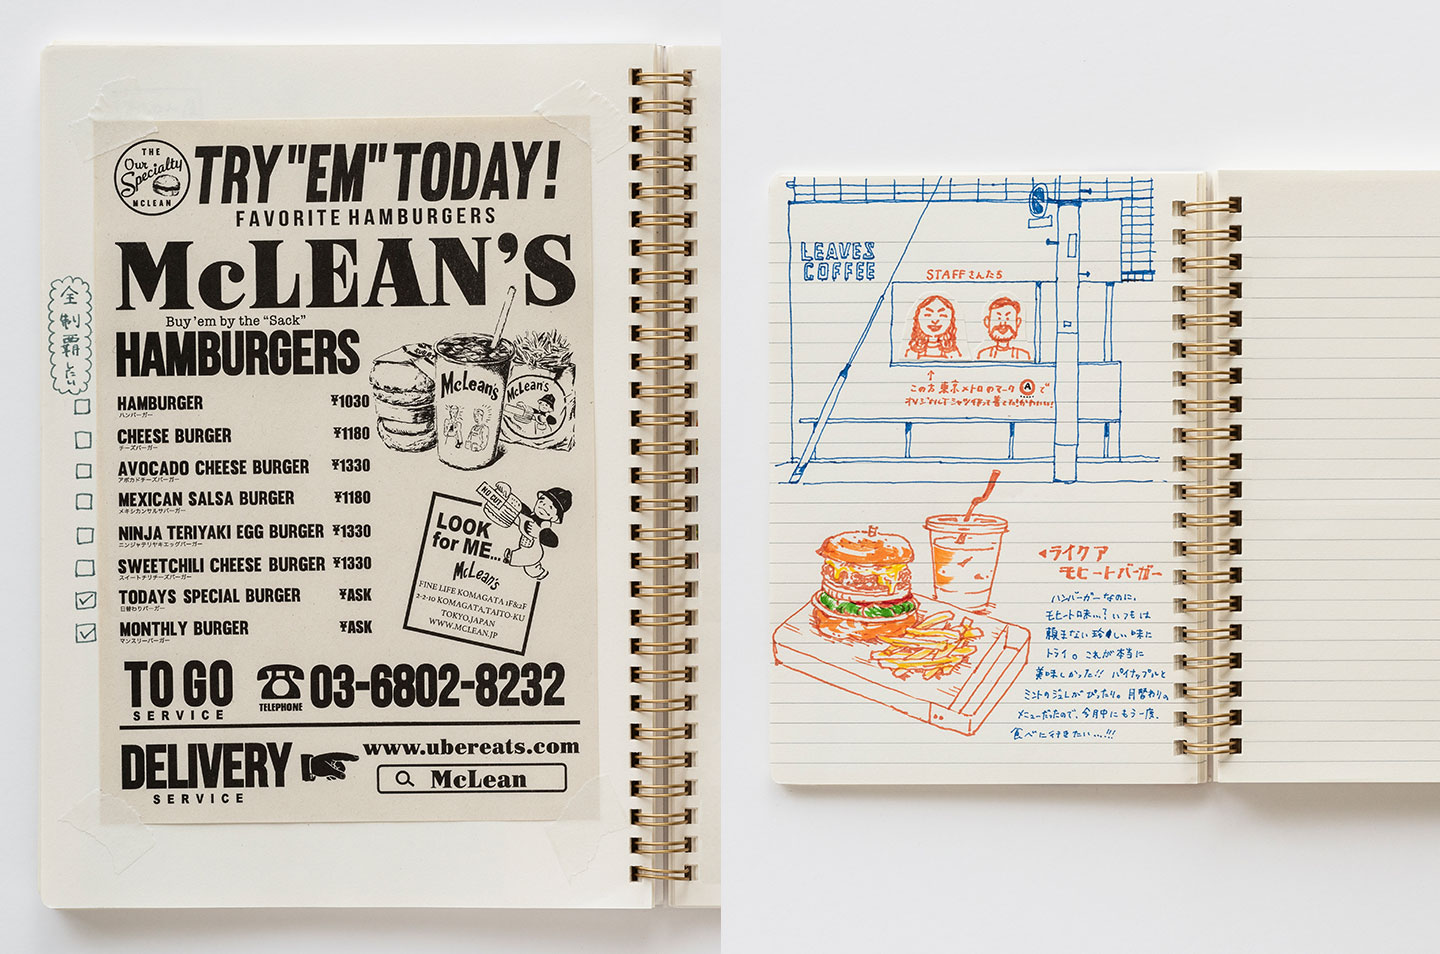 THE
Our
Specialty
MCLEAN
TRY "EM" TODAY!
FAVORITE HAMBURGERS
McLEAN'S
Buy 'em by the “Sack”
HAMBURGERS
全制覇したい
HAMBURGER ¥1030
ハンバーガー
CHEESE BURGER ¥1180
チーズバーガー
AVOCADO CHEESE BURGER ¥1330
アボカドチーズバーガー
MEXICAN SALSA BURGER ¥1180
メキシカンサルサバーガー
NINJA TERIYAKI EGG BURGER ¥1330
ニンジャテリヤキエッグバーガー
SWEETCHILI CHEESE BURGER ¥1330
スイートチリチーズバーガー
TODAYS SPECIAL BURGER ¥ASK
日替わりバーガー
MONTHLY BURGER ¥ASK
マンスリーバーガー
McLean's
McLean's
NO CUT
LOOK
for ME...
McLean's
FINE LIFE KOMAGATA 1F&2F
2-2-10 KOMAGATA,TAITO-KU
TOKYO,JAPAN
WWW.MCLEAN.JP
TO GO
SERVICE
TELEPHONE
03-6802-8232
DELIVERY
SERVICE
www.ubereats.com
McLean
LEAVES
COFFEE
STAFFさんたち
↑
この方東京メトロのマークAで
オリジナルTシャツ作って着てた!かわいい!
◀ライクア
モヒートバーガー
ハンバーガーなのに、
モヒート味…?いつもは
頼まない珍しい味に
トライ。これが本当に
美味しかった!!パイナップルと
ミントのジュレがぴったり。月替わりの
メニューだったので、今月中にもう一度、
食べに行きたい…!!!